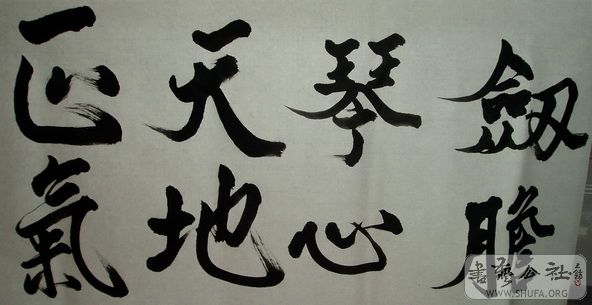 劒膽
琴心
天地
正氣
書藝公社
WWW.SHUFA.ORG